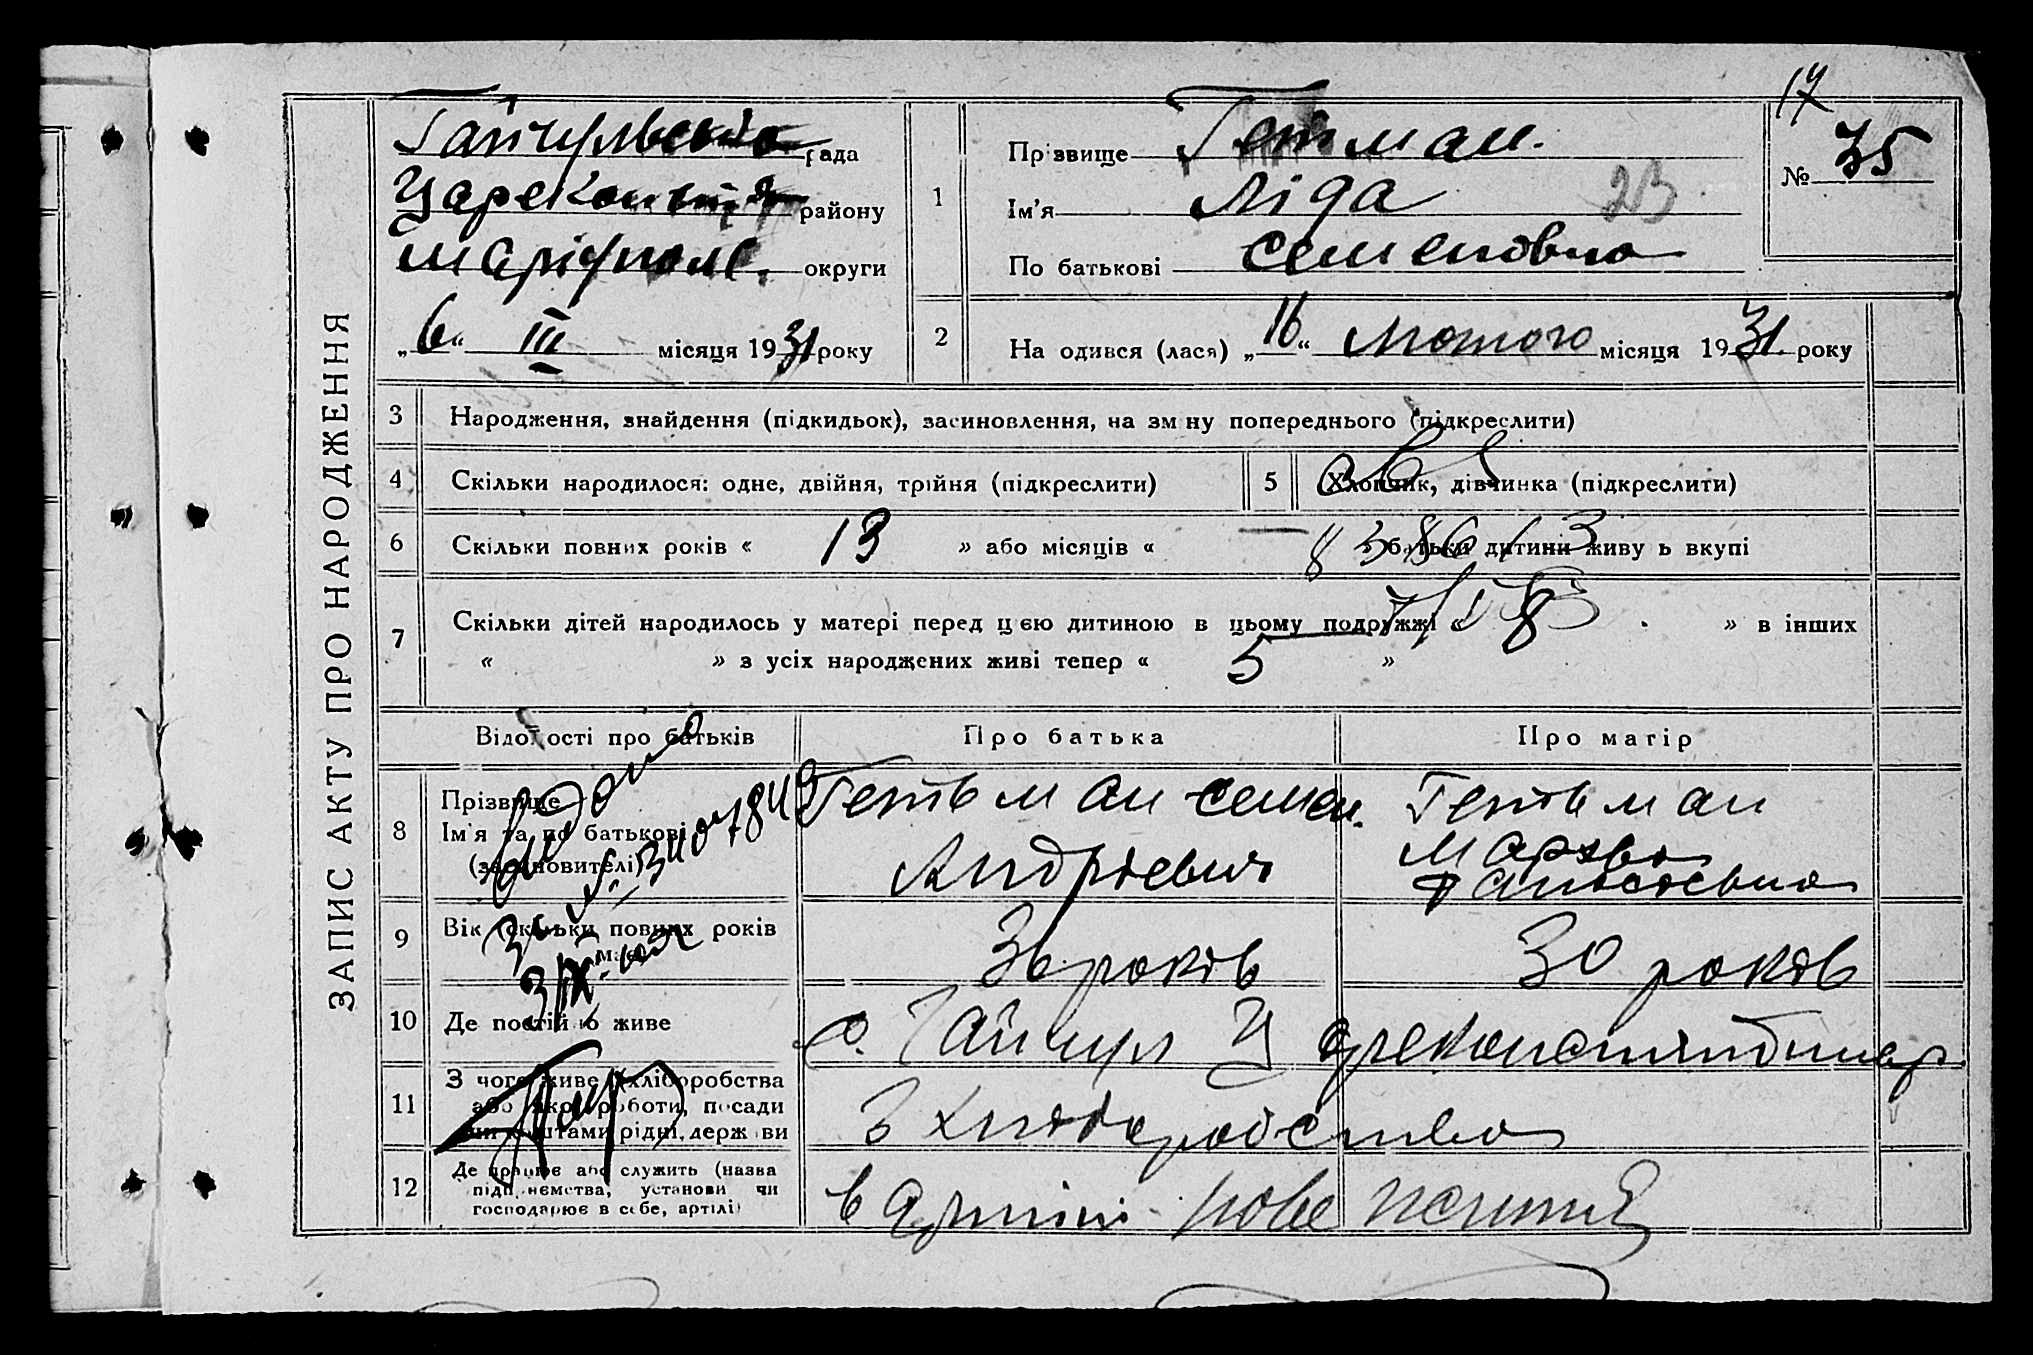 ЗАПИС АКТУ ПРО НАРОДЖЕННЯ
Гайчульська рада
району
Маріупол. округи
„6“ III місяця 1931 року
14
№ 35
1
Прізвище Гетман.
Ім'я Ліда
23
По батькові Семеновна
2
На одився (лася) „16“ Лютого місяця 1931 року
3 Народження, знайдення (підкидьок), засиновлення, на зм ну попереднього (підкреслити)
4 Скільки народилося: одне, двійня, трійня (підкреслити)
5 Хлопчик, дівчинка (підкреслити)
6 Скільки повних років « 13 » або місяців « — батьки дитини живу ь вкупі
7 Скільки дітей народилось у матері перед цею дитиною в цьому подружжі « 8 » в інших
« » з усіх народжених живі тепер « 5 »
Відомості про батьків
Про батька
Про матір
8 Прізвище
Ім'я та по батькові
(засиновителі)
Гетьман Семен.
Андрієвич
Гетьман
Марфа
9 Вік (скільки повних років має)
36 років
30 років
10 Де постійно живе
с. Гайчул Цареконстянтинівр
11 З чого живе (хліборобства
або якої роботи, посади
чи коштами рідні, держ ви
З Хліборобства
12 Де працює або служить (назва
підп иємства, установи чи
господарює в себе, артілі)
в Артілі Нове життя